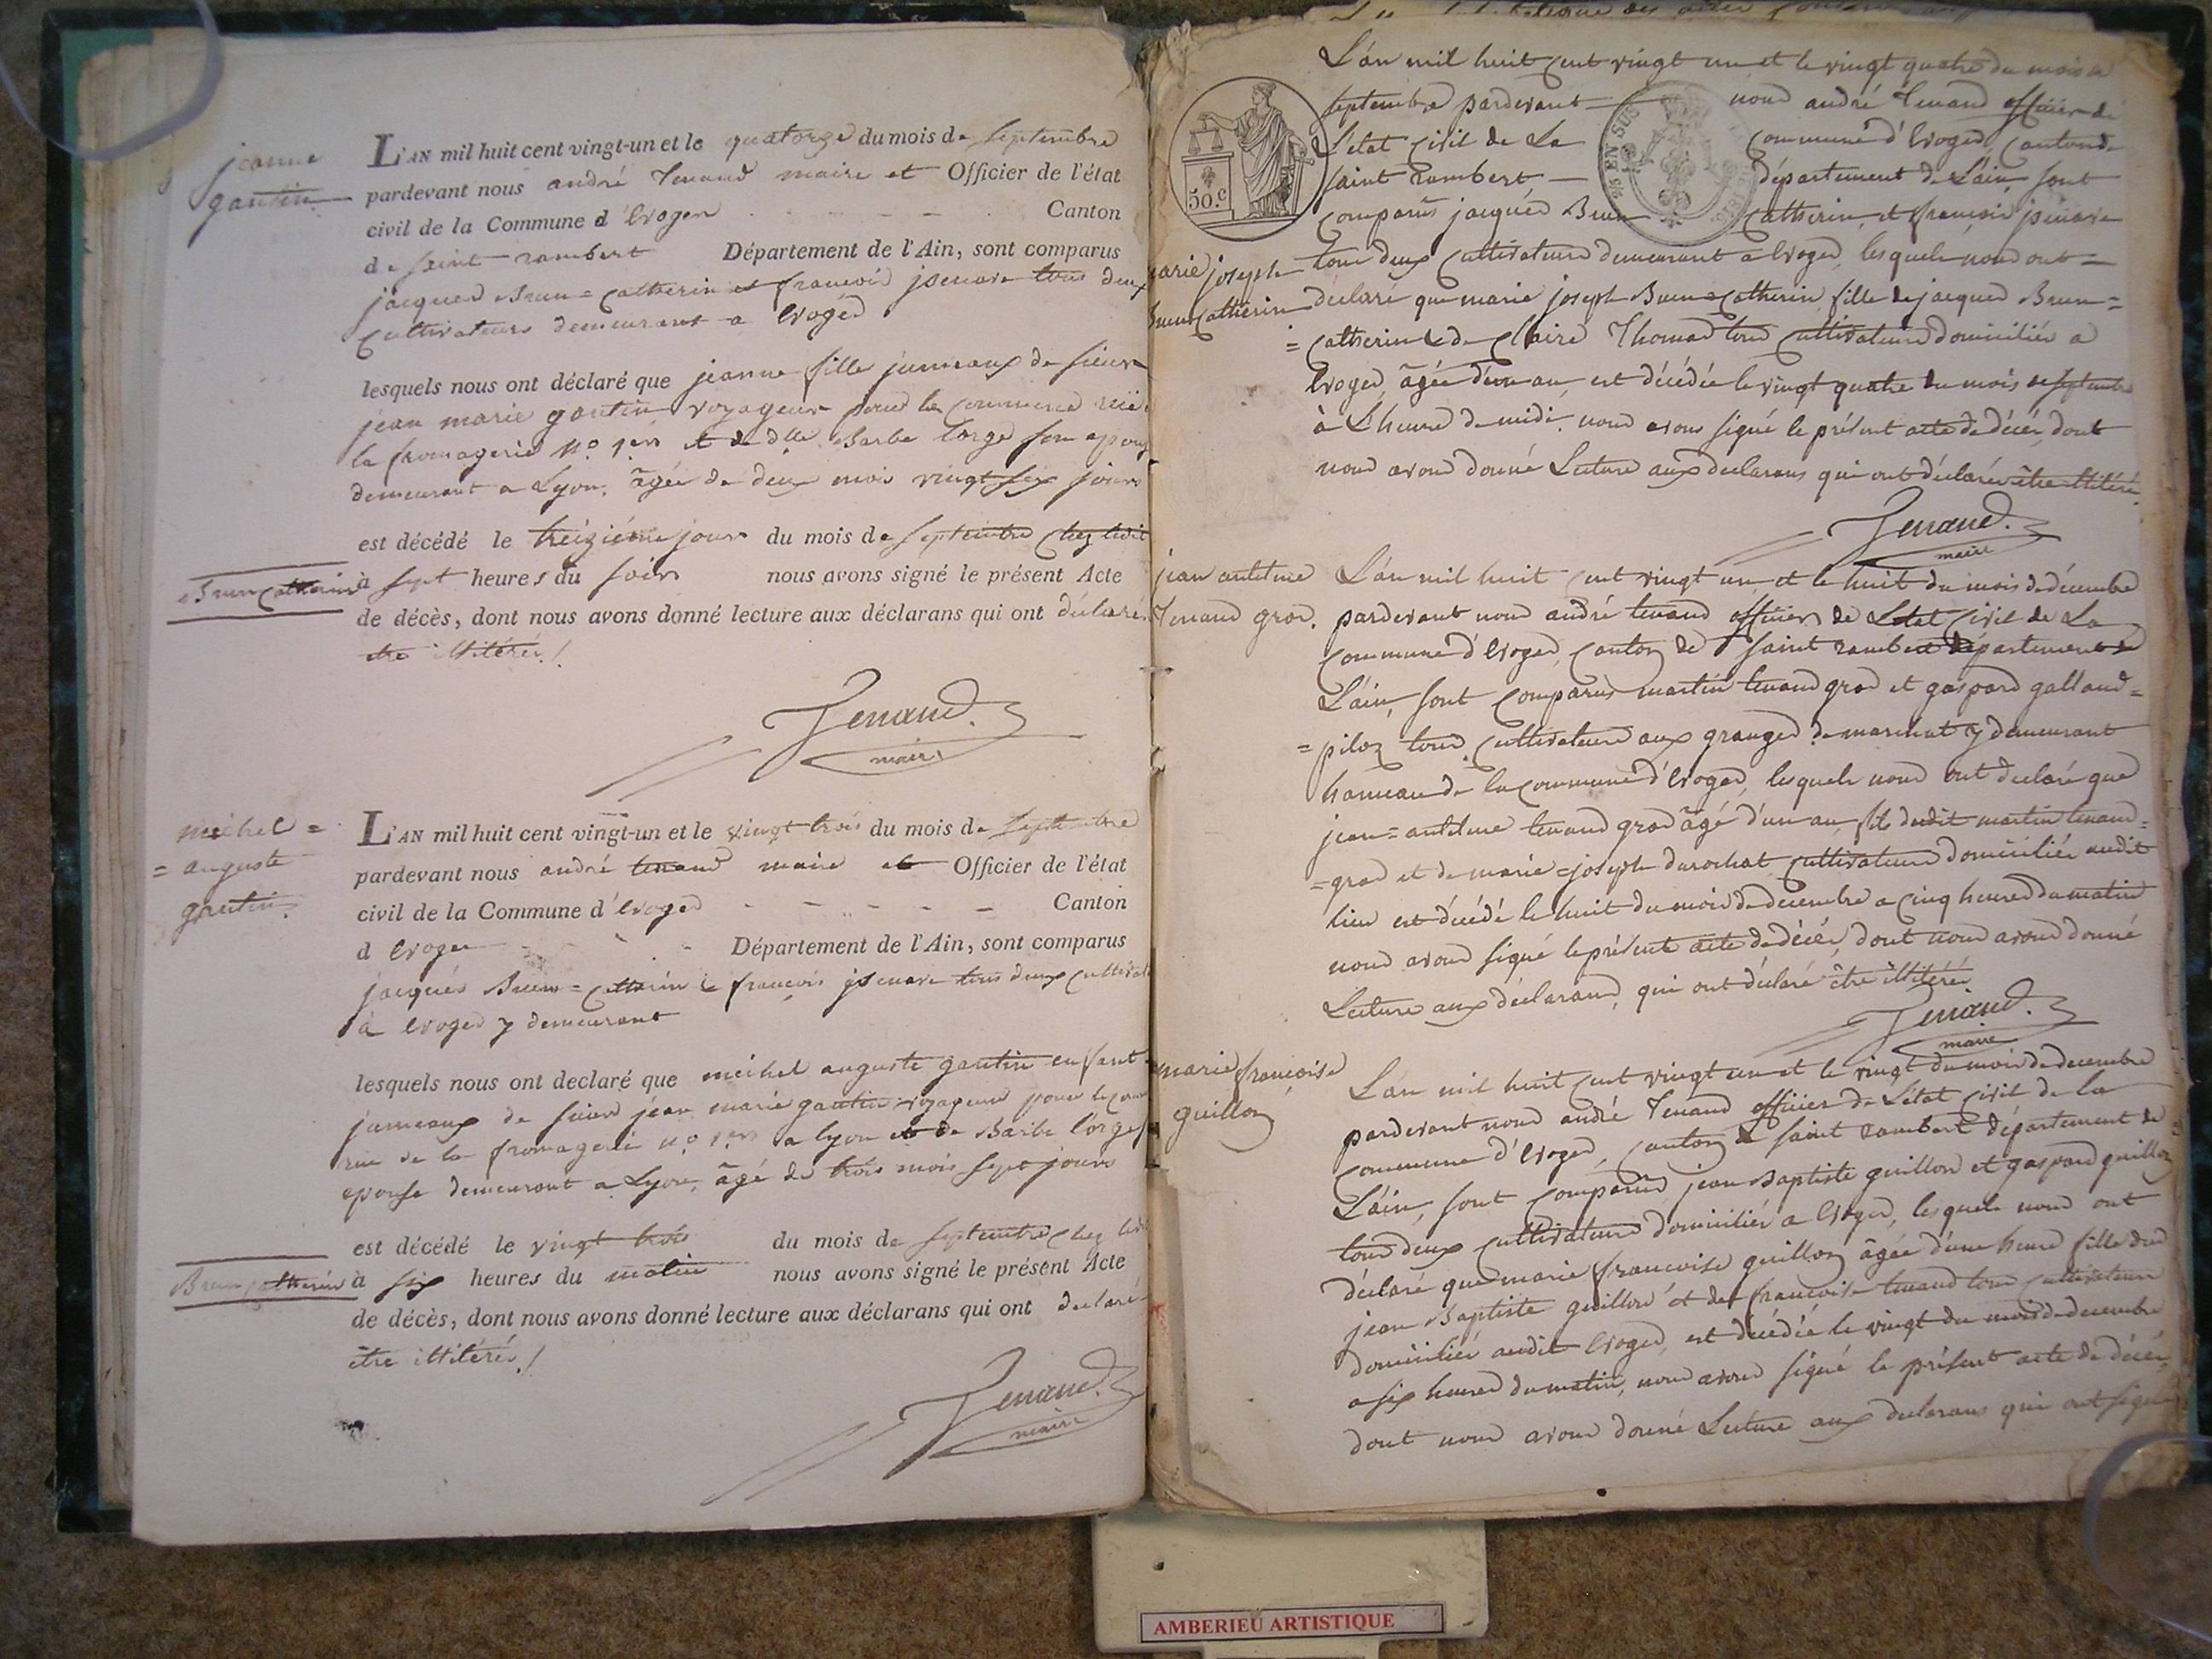 jeanne
gautin
L'AN mil huit cent vingt-un et le quatorze du mois de Septembre
pardevant nous andré Tenand maire et Officier de l'état
civil de la Commune d'Evoges Canton
de saint rambert Département de l'Ain, sont comparus
jacques Brun=Catherin et françois jsenare tous deux
Cultivateurs demeurant a Evoges
lesquels nous ont déclaré que jeanne fille jumeaux de sieur
jean marie gautin voyageur pour le commerce
la fromagerie N.o 1.er et de dlle Barbe Lorge son epouse
demeurant a Lyon, âgée de deux mois vingt six jours
est décédé le treizième jour du mois de septembre chez ledit
Brun Catherin à sept heures du soir nous avons signé le présent Acte
de décès, dont nous avons donné lecture aux déclarans qui ont déclarés
etre illitérés!
Tenand.
maire
michel =
= auguste
gautin.
L'AN mil huit cent vingt-un et le vingt trois du mois de Septembre
pardevant nous andré tenand maire et Officier de l'état
civil de la Commune d'Evoges Canton
d Evoges Département de l'Ain, sont comparus
jacques Brun=Catherin & françois jsenare tous deux cultivat
à Evoges y demeurant
lesquels nous ont declaré que michel auguste gautin enfant
jumeaux de sieur jean marie gautin voyageur pour le com
rue de la fromagerie N.o 1.er a lyon et de Barbe Lorge
epouse demeurant a Lyon, âgé de trois mois sept jours
est décédé le vingt trois du mois de septembre chez ledit
Brun Catherin à six heures du matin nous avons signé le présent Acte
de décès, dont nous avons donné lecture aux déclarans qui ont declaré
être illitérés!
Tenand.
maire
L'an mil huit cent vingt un et le vingt quatre du mois de
septembre pardevant nous andré Tenand officier de
L'etat civil de La Commune d'Evoges, Canton de
saint Rambert département de L'ain, sont
comparus jacques Brun Catherin, et françois jsenare
50.c
EN SUS
marie joseph
Brun Catherin
tous deux cultivateurs demeurant a Evoges, lesquels nous ont =
declaré que marie joseph Brun=Catherin, fille de jacques Brun=
= Catherin & de Claire Thomas tous cultivateurs domiciliés a
Evoges, âgée d'un an, est décédée le vingt quatre du mois de septembre
à L'heure de midi. nous avons signé le présent acte de décés, dont
nous avons donné Lecture aux declarans qui ont déclarés être illitérés
Tenand.
maire
jean antelme
Tenand gros.
L'an mil huit cent vingt un, et le huit du mois de décembre
pardevant nous andré tenand officier de L'etat civil de La
commune d'Evoges, canton de saint rambert département de
L'ain, sont comparus martin tenand gros et gaspard galland=
= piloz tous cultivateurs aux granges de marchat y demeurant
hameau de la commune d'Evoges, lesquels nous ont declaré que
jean=antelme tenand gros âgé d'un an, fils dudit martin tenand=
= gros et de marie=joseph durochat cultivateurs domiciliés audit
lieu est décédé le huit du mois de decembre a cinq heures du matin
nous avons signé le présent acte de décés, dont nous avons donné
Lecture aux déclarans, qui ont déclaré être illitérés
Tenand.
maire
marie françoise
guillon
L'an mil huit cent vingt un et le vingt du mois de decembre
pardevant nous andré Tenand officier de L'etat civil de la
commune d'Evoges, canton de saint rambert département de
L'ain, sont comparus jean Baptiste guillon et gaspard guillon
tous deux cultivateurs domiciliés a Evoges, lesquels nous ont
déclaré que marie françoise guillon âgée d'une heure fille dud
jean Baptiste guillon et de françoise tenand tous cultivateurs
domiciliés audit Evoges, est décédée le vingt du mois de decembre
a six heures du matin, nous avons signé le présent acte de décés,
dont nous avons donné Lecture aux declarans qui ont signé
AMBERIEU ARTISTIQUE